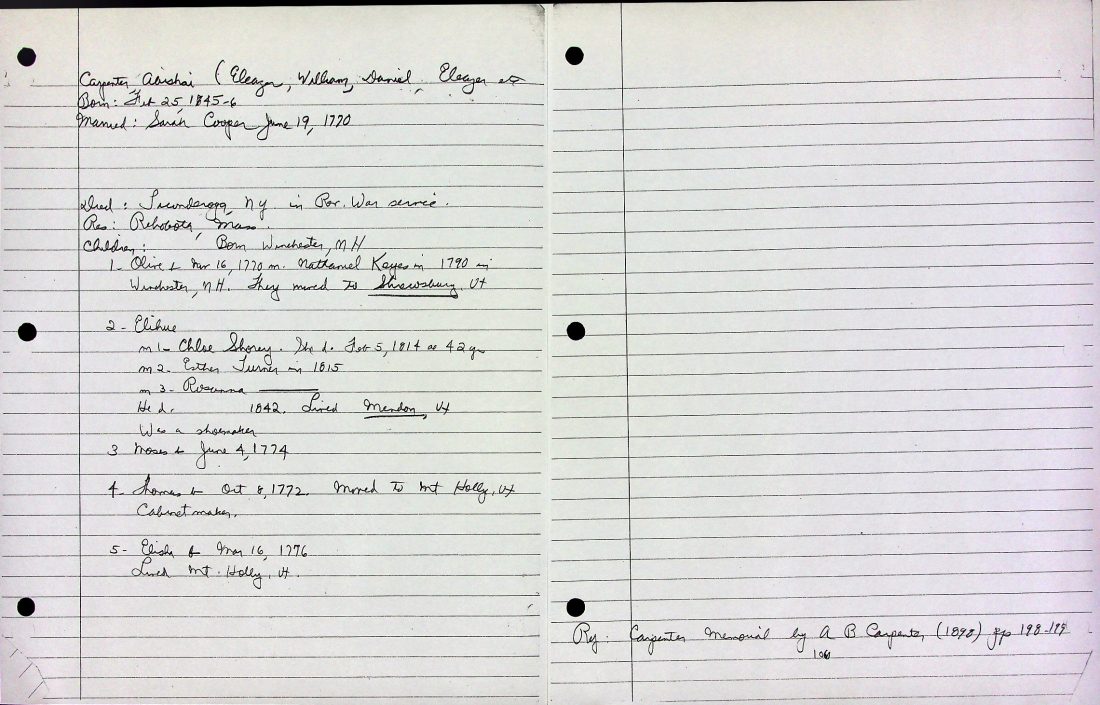 Carpenter, Abishai (Eleazer, William, Daniel, Eleazer
Born: Feb 25, 1845-6
Married: Sarah Cooper June 19, 1770
Died: Ticonderoga, NY in Rev. War service.
Res: Rehoboth, Mass.
Children: Born Winchester, NH
1- Olive b Mar 16, 1770 m. Nathaniel Keyes in 1790 in
Winchester, NH. They moved to Shrewsbury, Vt
2- Elihue
m 1- Chloe Shorey. She d. Feb 5, 1814 ae 42 y
m 2- Esther Turner in 1815
m 3- Rosanna
He d. 1842. Lived Mendon, Vt
Was a shoemaker
3 Moses b June 4, 1774
4- Thomas b Oct 8, 1772. Moved to Mt Holly, Vt
Cabinet maker.
5- Elisha b Mar 16, 1776
Lived Mt. Holly, Vt.
Ref: Carpenter Memorial by A B Carpenter (1898) pp 198-199